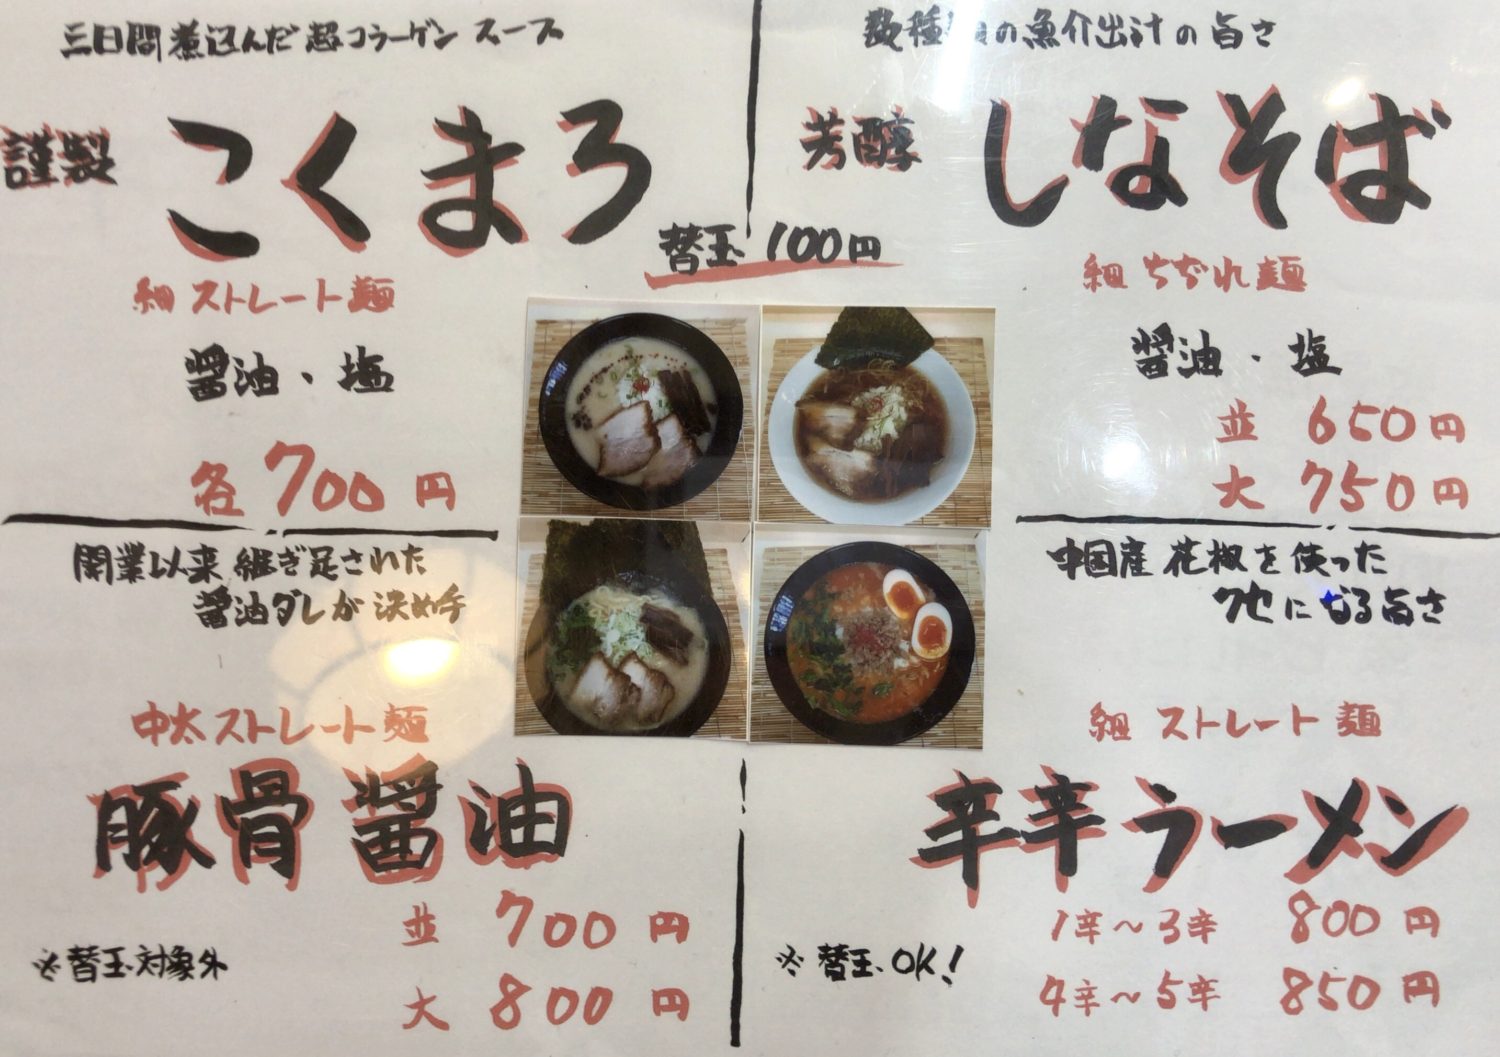 三日間煮込んだ超コラーゲンスープ
謹製
こくまろ
細ストレート麺
醤油・塩
各700円
替玉 100円
数種類の魚介出汁の旨さ
芳醇
しなそば
細ちぢれ麺
醤油・塩
並 650円
大 750円
開業以来継ぎ足された
醤油ダレが決め手
中太ストレート麺
豚骨醤油
並 700円
大 800円
※替玉対象外
中国産花椒を使った
クセになる旨さ
細ストレート麺
辛辛ラーメン
1辛〜3辛 800円
4辛〜5辛 850円
※替玉OK!